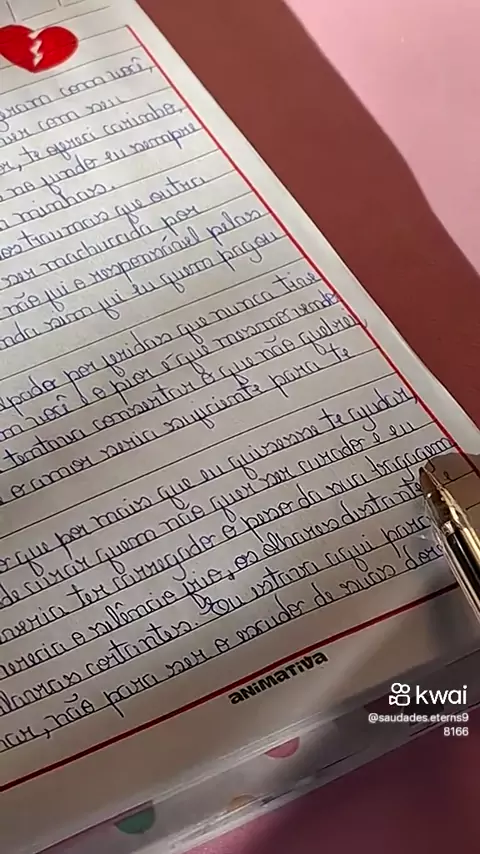 com você,
com seu
te ofereci carinho,
no fundo eu sempre
minhas.
os traumas que outra
ser machucada por
não fui o responsável pelas
ainda sim fui eu quem pagou
por feridas que nunca tive
você, e o pior é que mesmo vendo
tentava consertar o que não quebrei
o amor seria suficiente para te
que por mais que eu quisesse te ajudar,
de curar quem não quer ser curado e eu
ter carregado o peso da sua bagagem
merecia o silêncio frio, os olhares distantes e
cortantes. Eu estava aqui para
não para ser o escudo de suas dores
ANIMATIVA
kwai
@saudades.eterns9
8166